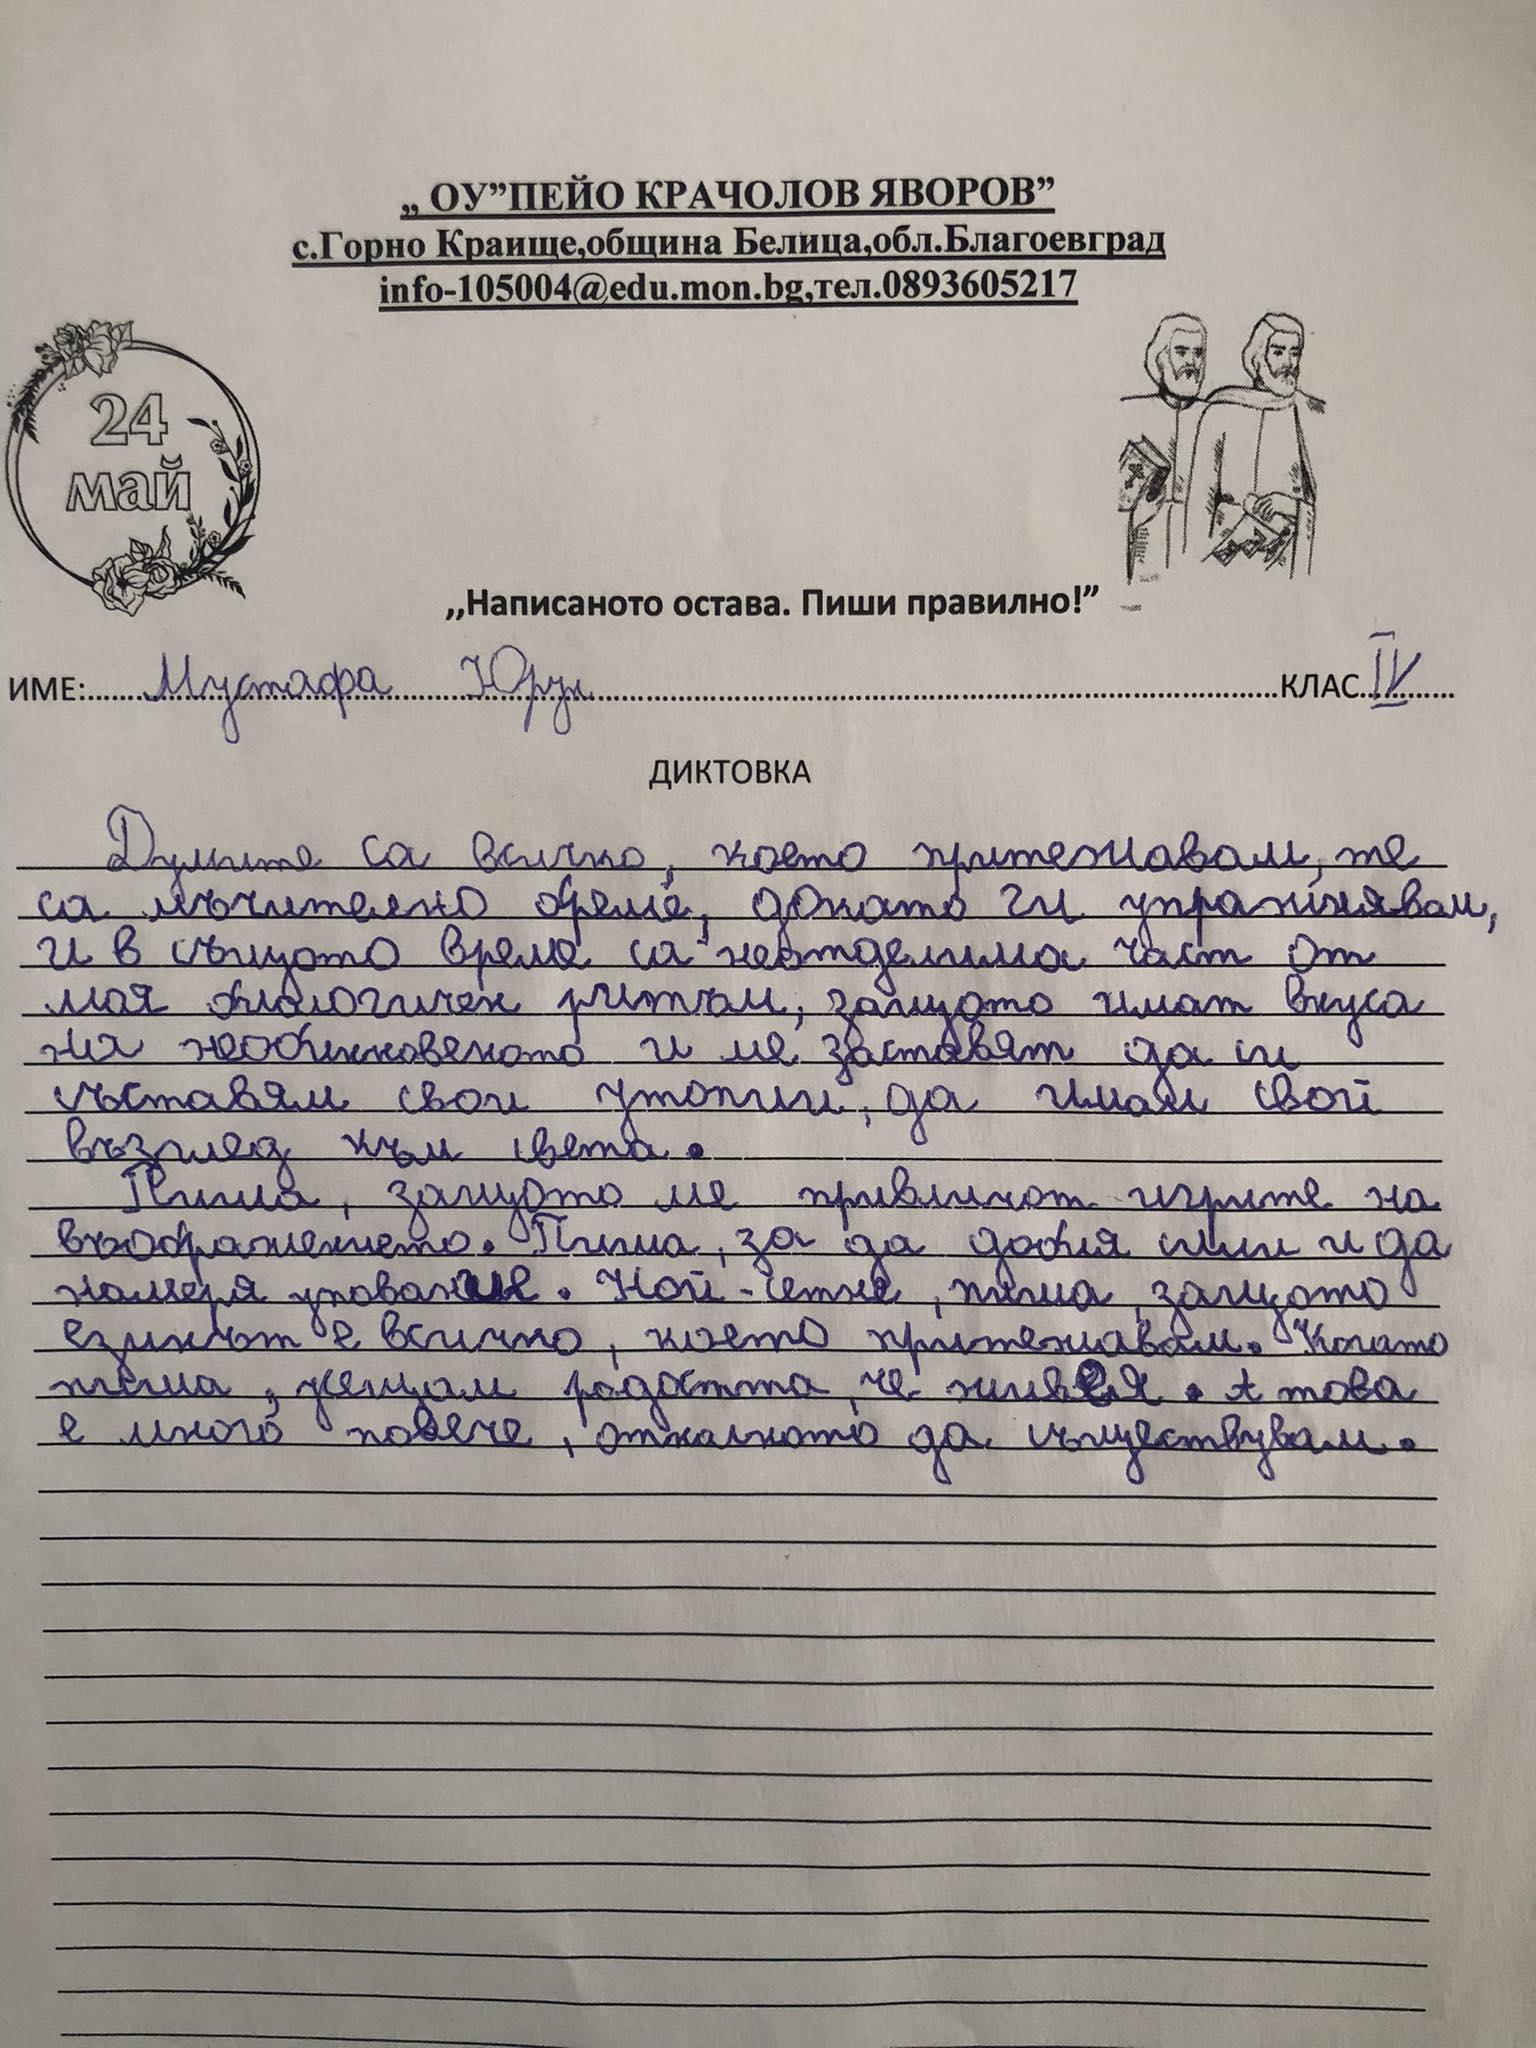 „ ОУ”ПЕЙО КРАЧОЛОВ ЯВОРОВ”
с.Горно Краище,община Белица,обл.Благоевград
info-105004@edu.mon.bg,тел.0893605217
24
май
,,Написаното остава. Пиши правилно!”
ИМЕ: Мустафа Юрук КЛАС IV
ДИКТОВКА
Думите са всичко, което притежавам, те
са мъчително бреме, докато ги упражнявам,
и в същото време са неотделима част от
моя биологичен ритъм, защото имат вкуса
на необикновеното и ме заставят да си
съставям свои утопии, да имам свой
възглед към света.
Пиша, защото ме привличат игрите на
въображението. Пиша, за да добия сили и да
намеря упование. Най-сетне, пиша, защото
езикът е всичко, което притежавам. Когато
пиша, усещам радостта, че живея. А това
е много повече, отколкото да съществувам.